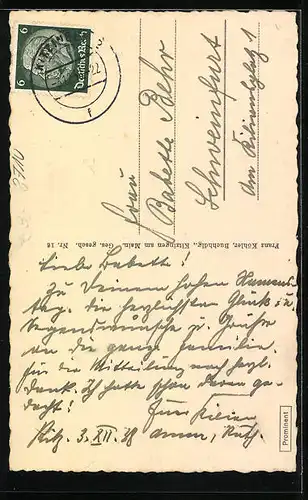 6
6
Deutsches Reich
22
r
Frau
Babette Behr
Schweinfurt
Am Kiliansberg 1
Franz Köhler, Buchhdlg., Kitzingen am Main. Ges. gesch. Nr. 18
Liebe Babette!
Zu Deinem hohen Namens-
tag die herzlichsten Glück- u.
Segenswünsche u. Grüße
an die ganze Familie.
Für die Mitteilung noch herzl.
Dank. Ich hatte schon daran ge-
dacht!
Kilian
Kitz. 3. XII. 38
Prominent